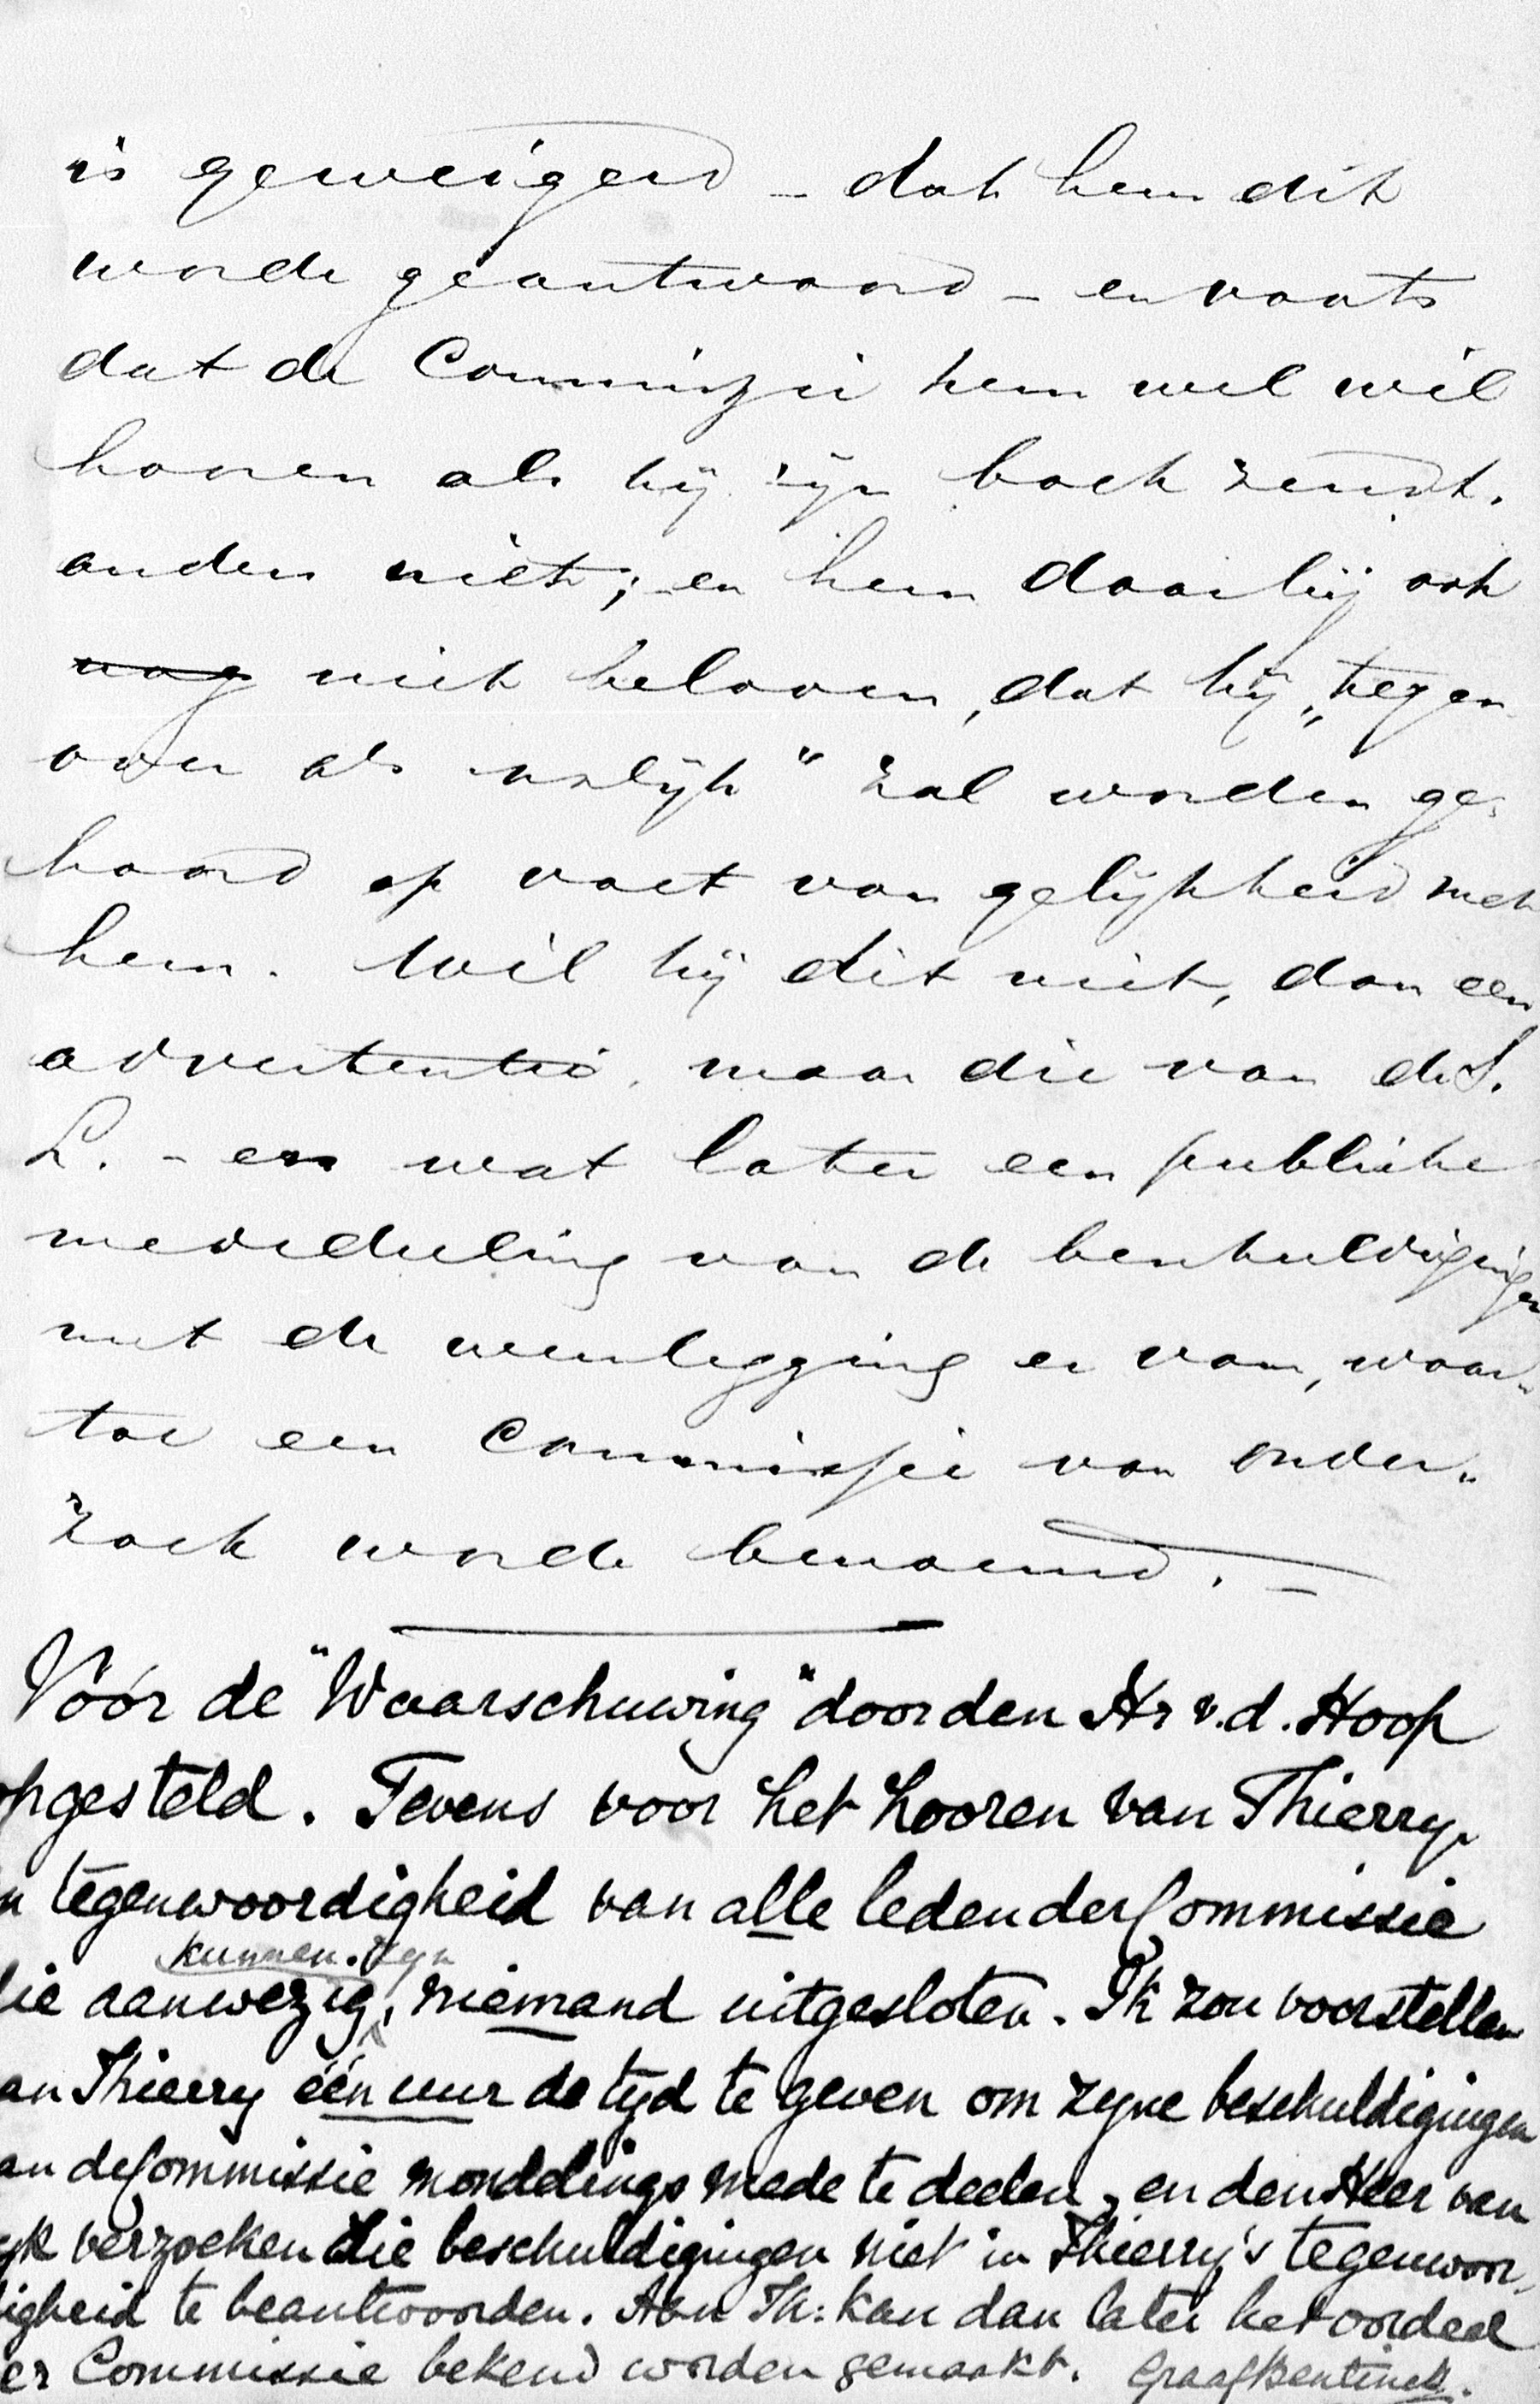 is geweigerd – dat hem dit
worde geantwoord – en voorts
dat de Commissie hem wel wil
hooren als hij zijn boek zendt.
anders niet; en hem daarbij ook
nog niet beloven, dat hij „tegen
over als" zal worden ge-
hoord op voet van gelijkheid met
hem. Wil hij dit niet, dan een
advertentie, maar die van de S.
L. – en wat later een publieke
mededeeling van de beschuldigingen
met de weerlegging er van, waar-
toe een Commissie van onder-
zoek worde benoemd. –
Vóór de "Waarschuwing" door den Hr v.d. Hoop
opgesteld. Tevens voor het hooren van Thierry.
n tegenwoordigheid van alle leden der Commissie
kunnen zyn
die aanwezig, niemand uitgesloten. Ik zou voorstellen
an Thierry één uur de tyd te geven om zyne beschuldigingen
an de Commissie mondelings mede te deelen, en den Heer van
yk verzoeken die beschuldigingen niet in Thierry's tegenwoor,
igheid te beantwoorden. Aan Th: kan dan later het oordeel
er Commissie bekend worden gemaakt. Graaf Bentinck.